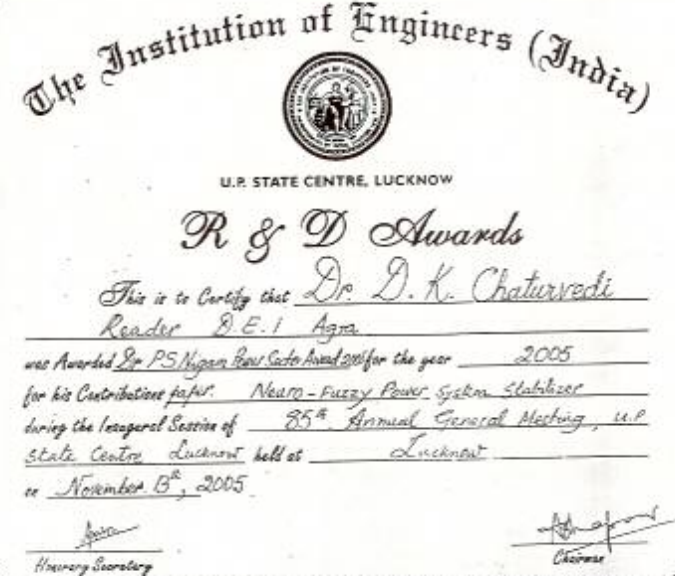 The Institution of Engineers (India)
U.P. STATE CENTRE, LUCKNOW
R & D Awards
This is to Certify that Dr. D. K. Chaturvedi
Reader D.E.I Agra
was Awarded Dr PS Nigam Power Sector Award for the year 2005
for his Contributions paper. Neuro-Fuzzy Power System Stabilizer
during the Inaugural Session of 85th Annual General Meeting, U.P
State Centre Lucknow held at Lucknow
on November 13th, 2005
Honorary Secretary
Chairman